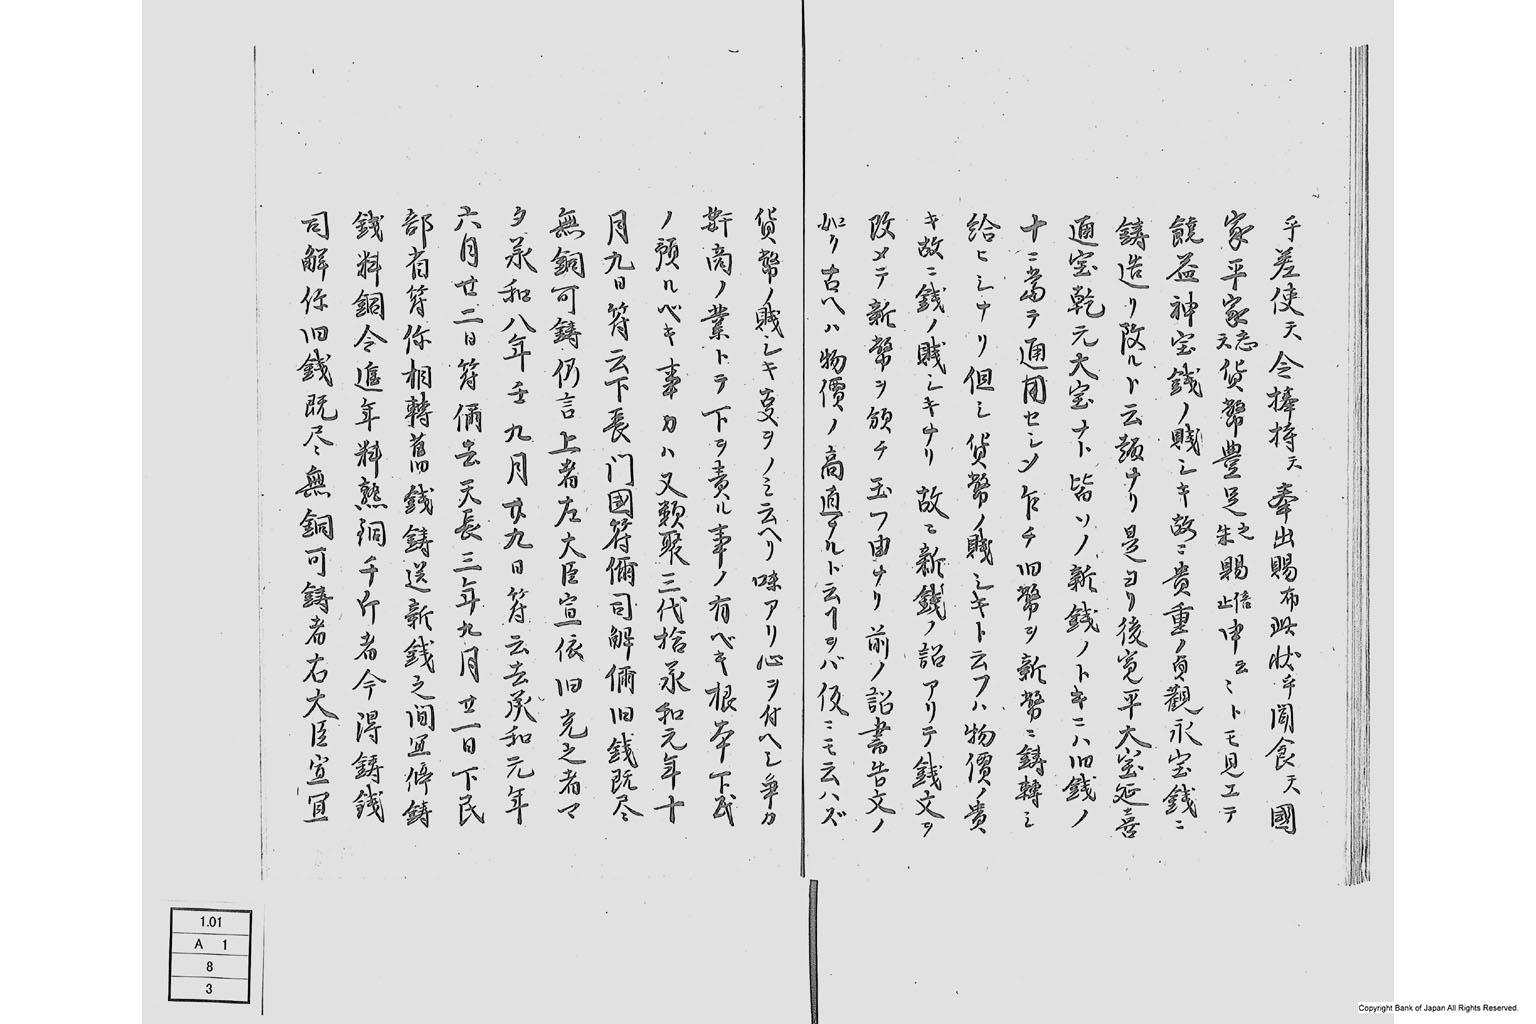 乎差使天令捧持天奉出賜布此状乎聞食天國
家平家久天下貨幣豊足之米賜倍止申云ミトモ見エテ
饒益神宝銭ノ賎シキ故ニ貴重ノ貞觀永宝銭ニ
鋳造リ改ルト云趣ナリ是ヨリ後寛平大宝延喜
通宝乾元大宝ナト皆ソノ新銭ノトキニハ旧銭ノ
十ニ當テ通用セシメ乍チ旧幣ヲ新幣ニ鋳轉シ
給ヒシナリ但シ貨幣ノ賎シキト云フハ物價ノ貴
キ故ニ銭ノ賎シキナリ故ニ新銭ノ詔アリテ銭文ヲ
改メテ新幣ヲ頒チ玉フ由ナリ前ノ詔書告文ノ
如リ古ヘハ物價ノ高直ナルト云フヲバ仮ニモ云ハズ
貨幣ノ賎シキ哀ヲノミ云ヘリ味アリ心ヲ付ヘシ毎カ
斯商ノ業トテ下ヲ責ル事ノ有ベキ根本下民
ノ預ルベキ事カハ又類聚三代格承和元年十
月九日符云下長门國符偁司解偁旧銭既尽
無銅可鋳仍言上者左大臣宣依旧充之者マ
タ承和八年壬九月廿九日符云去承和元年
六月廿二日符偁去天長三年九月廿一日下民
部省符你相轉舊銭鋳送新銭之间宜停鋳
銭料銅令進年料熟銅千斤者今得鋳銭
司解你旧銭既尽無銅可鋳者右大臣宣宜
1.01
A 1
8
3
Copyright Bank of Japan All Rights Reserved.